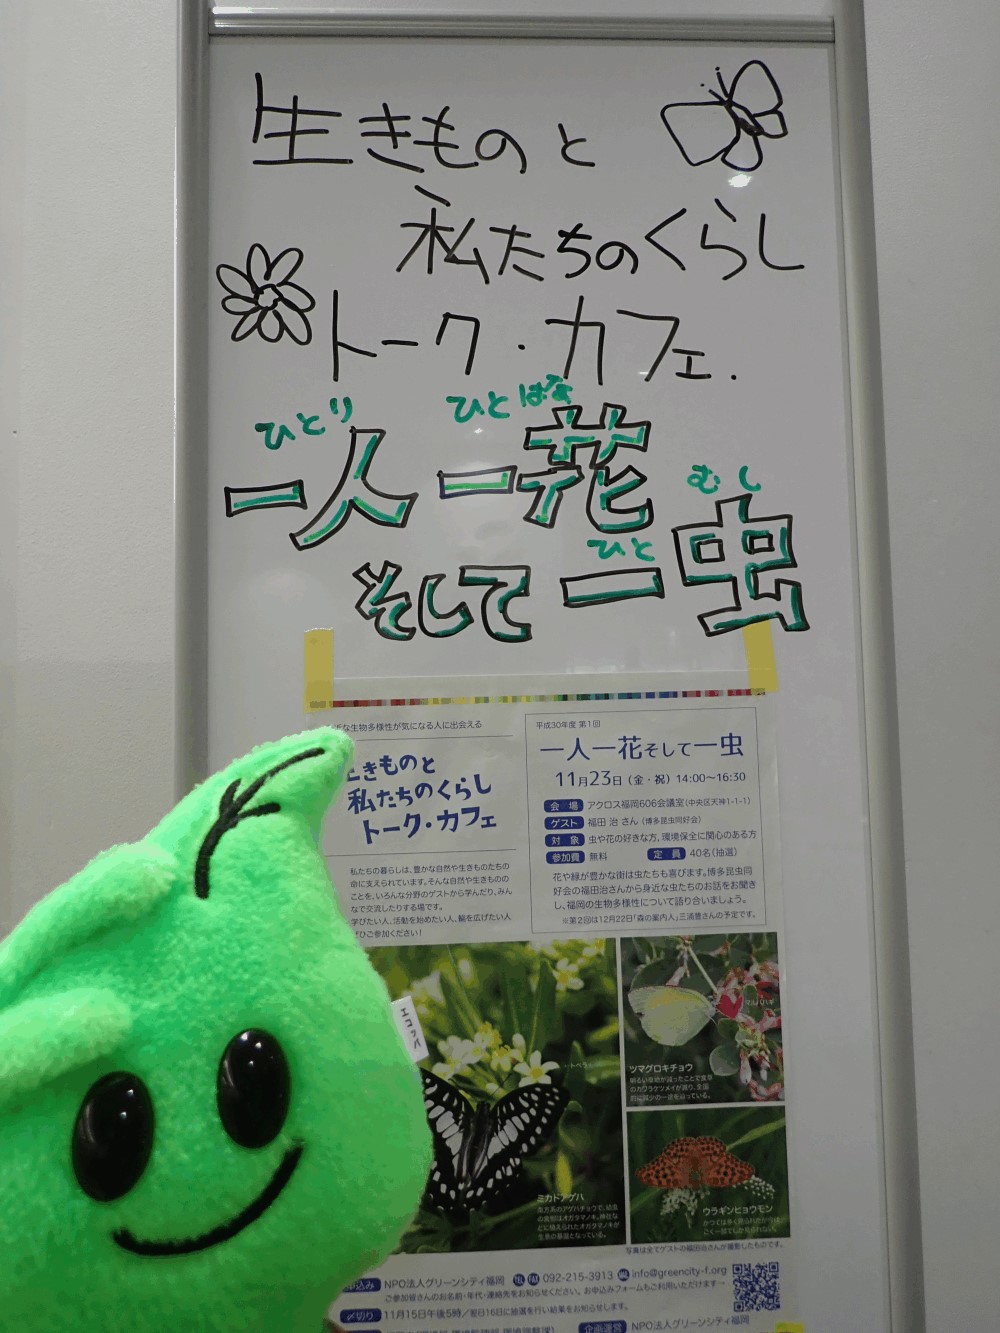 生きものと
私たちのくらし
トーク・カフェ.
ひとり ひとばな
一人一花
むし
ひと
そして一虫
な生物多様性が気になる人に出会える
生きものと
私たちのくらし
トーク・カフェ
私たちの暮らしは、豊かな自然や生きものたちの
命に支えられています。そんな自然や生きものの
ことを、いろんな分野のゲストから学んだり、みん
なで交流したりする場です。
学びたい人、活動を始めたい人、輪を広げたい人
ぜひご参加ください!
平成30年度 第1回
一人一花そして一虫
11月23日(金・祝)14:00〜16:30
会場 アクロス福岡606会議室(中央区天神1-1-1)
ゲスト 福田 治 さん(博多昆虫同好会)
対象 虫や花の好きな方、環境保全に関心のある方
参加費 無料 定員 40名(抽選)
花や緑が豊かな街は虫たちも喜びます。博多昆虫同
好会の福田治さんから身近な虫たちのお話をお聞き
し、福岡の生物多様性について語り合いましょう。
※第2回は12月22日「森の案内人」三浦豊さんの予定です。
エコッパ
トベラ
マルバハギ
ツマグロキチョウ
明るい草地が減ったことで食草
のカワラケツメイが減り、全国
的に減少の一途を辿っている。
ミカドアゲハ
南方系のアゲハチョウで、幼虫
の食樹はオガタマノキ。神社な
どに植えられたオガタマノキが
生息の基盤となっている。
ウラギンヒョウモン
かつては多く見られたが今は
ごく一部でしか見られない。
写真は全てゲストの福田治さんが撮影したものです。
申込み NPO法人グリーンシティ福岡 TEL FAX 092-215-3913 MAIL info@greencity-f.org
ご参加皆さんのお名前・年代・連絡先をお知らせください。お申込みフォームもご利用いただけます→
〆切り 11月15日午後5時/翌日16日に抽選を行い結果をお知らせします。
企画運営 NPO法人グリーンシティ福岡